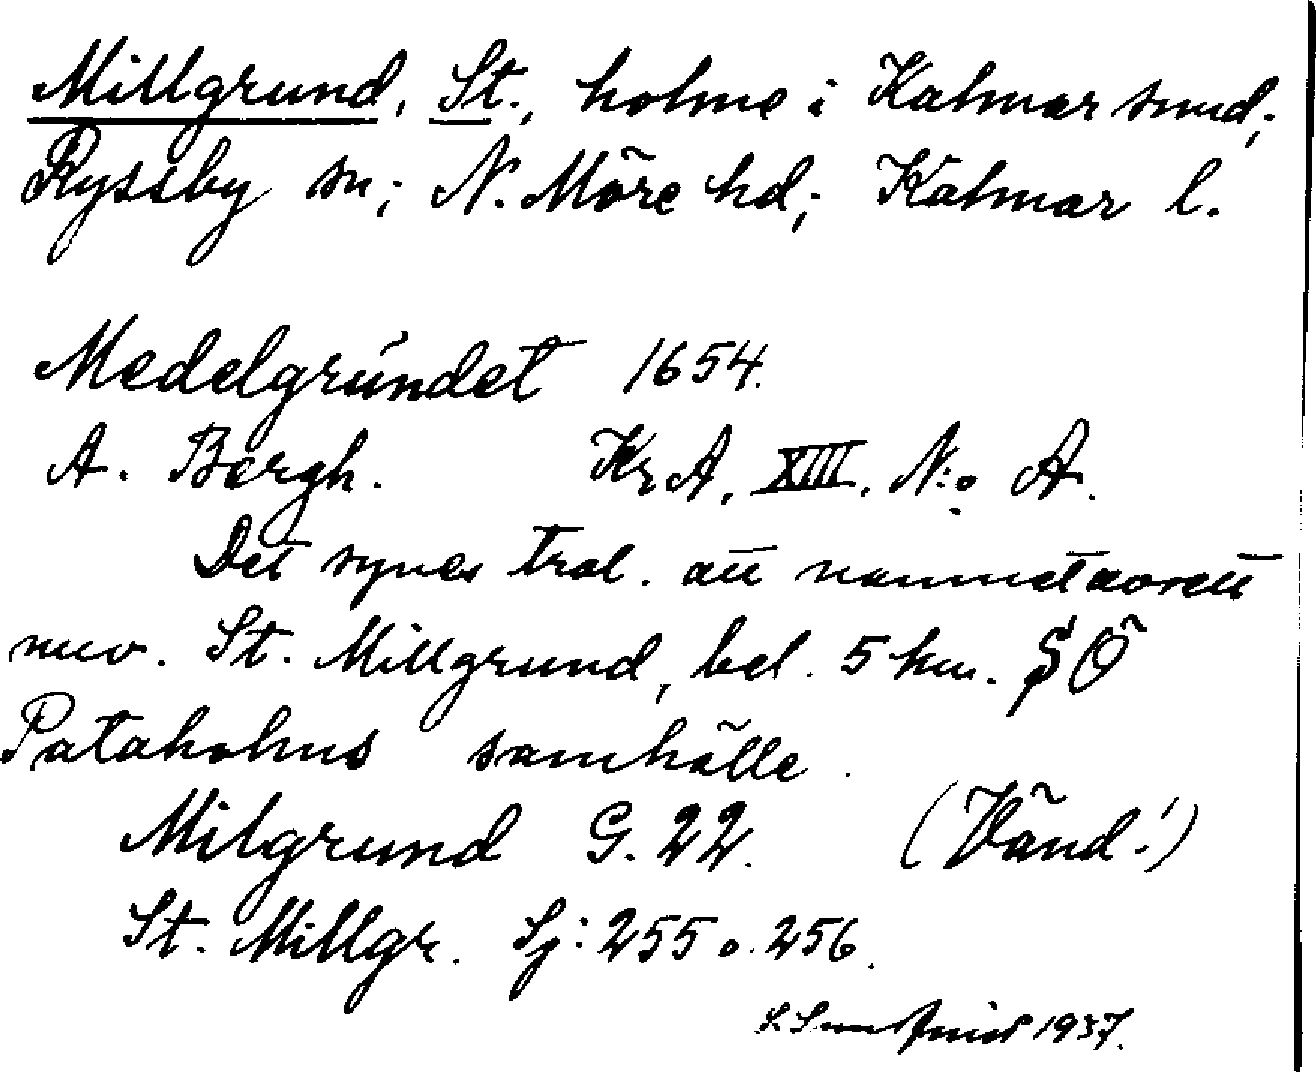 Millgrund, St., holme i Kalmar sund;
Ryssby sn; N. Möre hd; Kalmar l.
Medelgrundet 1654.
A. Bergh. KrA, XIII, N:o A.
Det synes trol. att namnet avsett
nuv. St. Millgrund, bel. 5 km. SÖ
Pataholms samhälle.
Milgrund G. 22. (Vänd!)
St. Millgr. Sj: 255 o. 256.
1937.